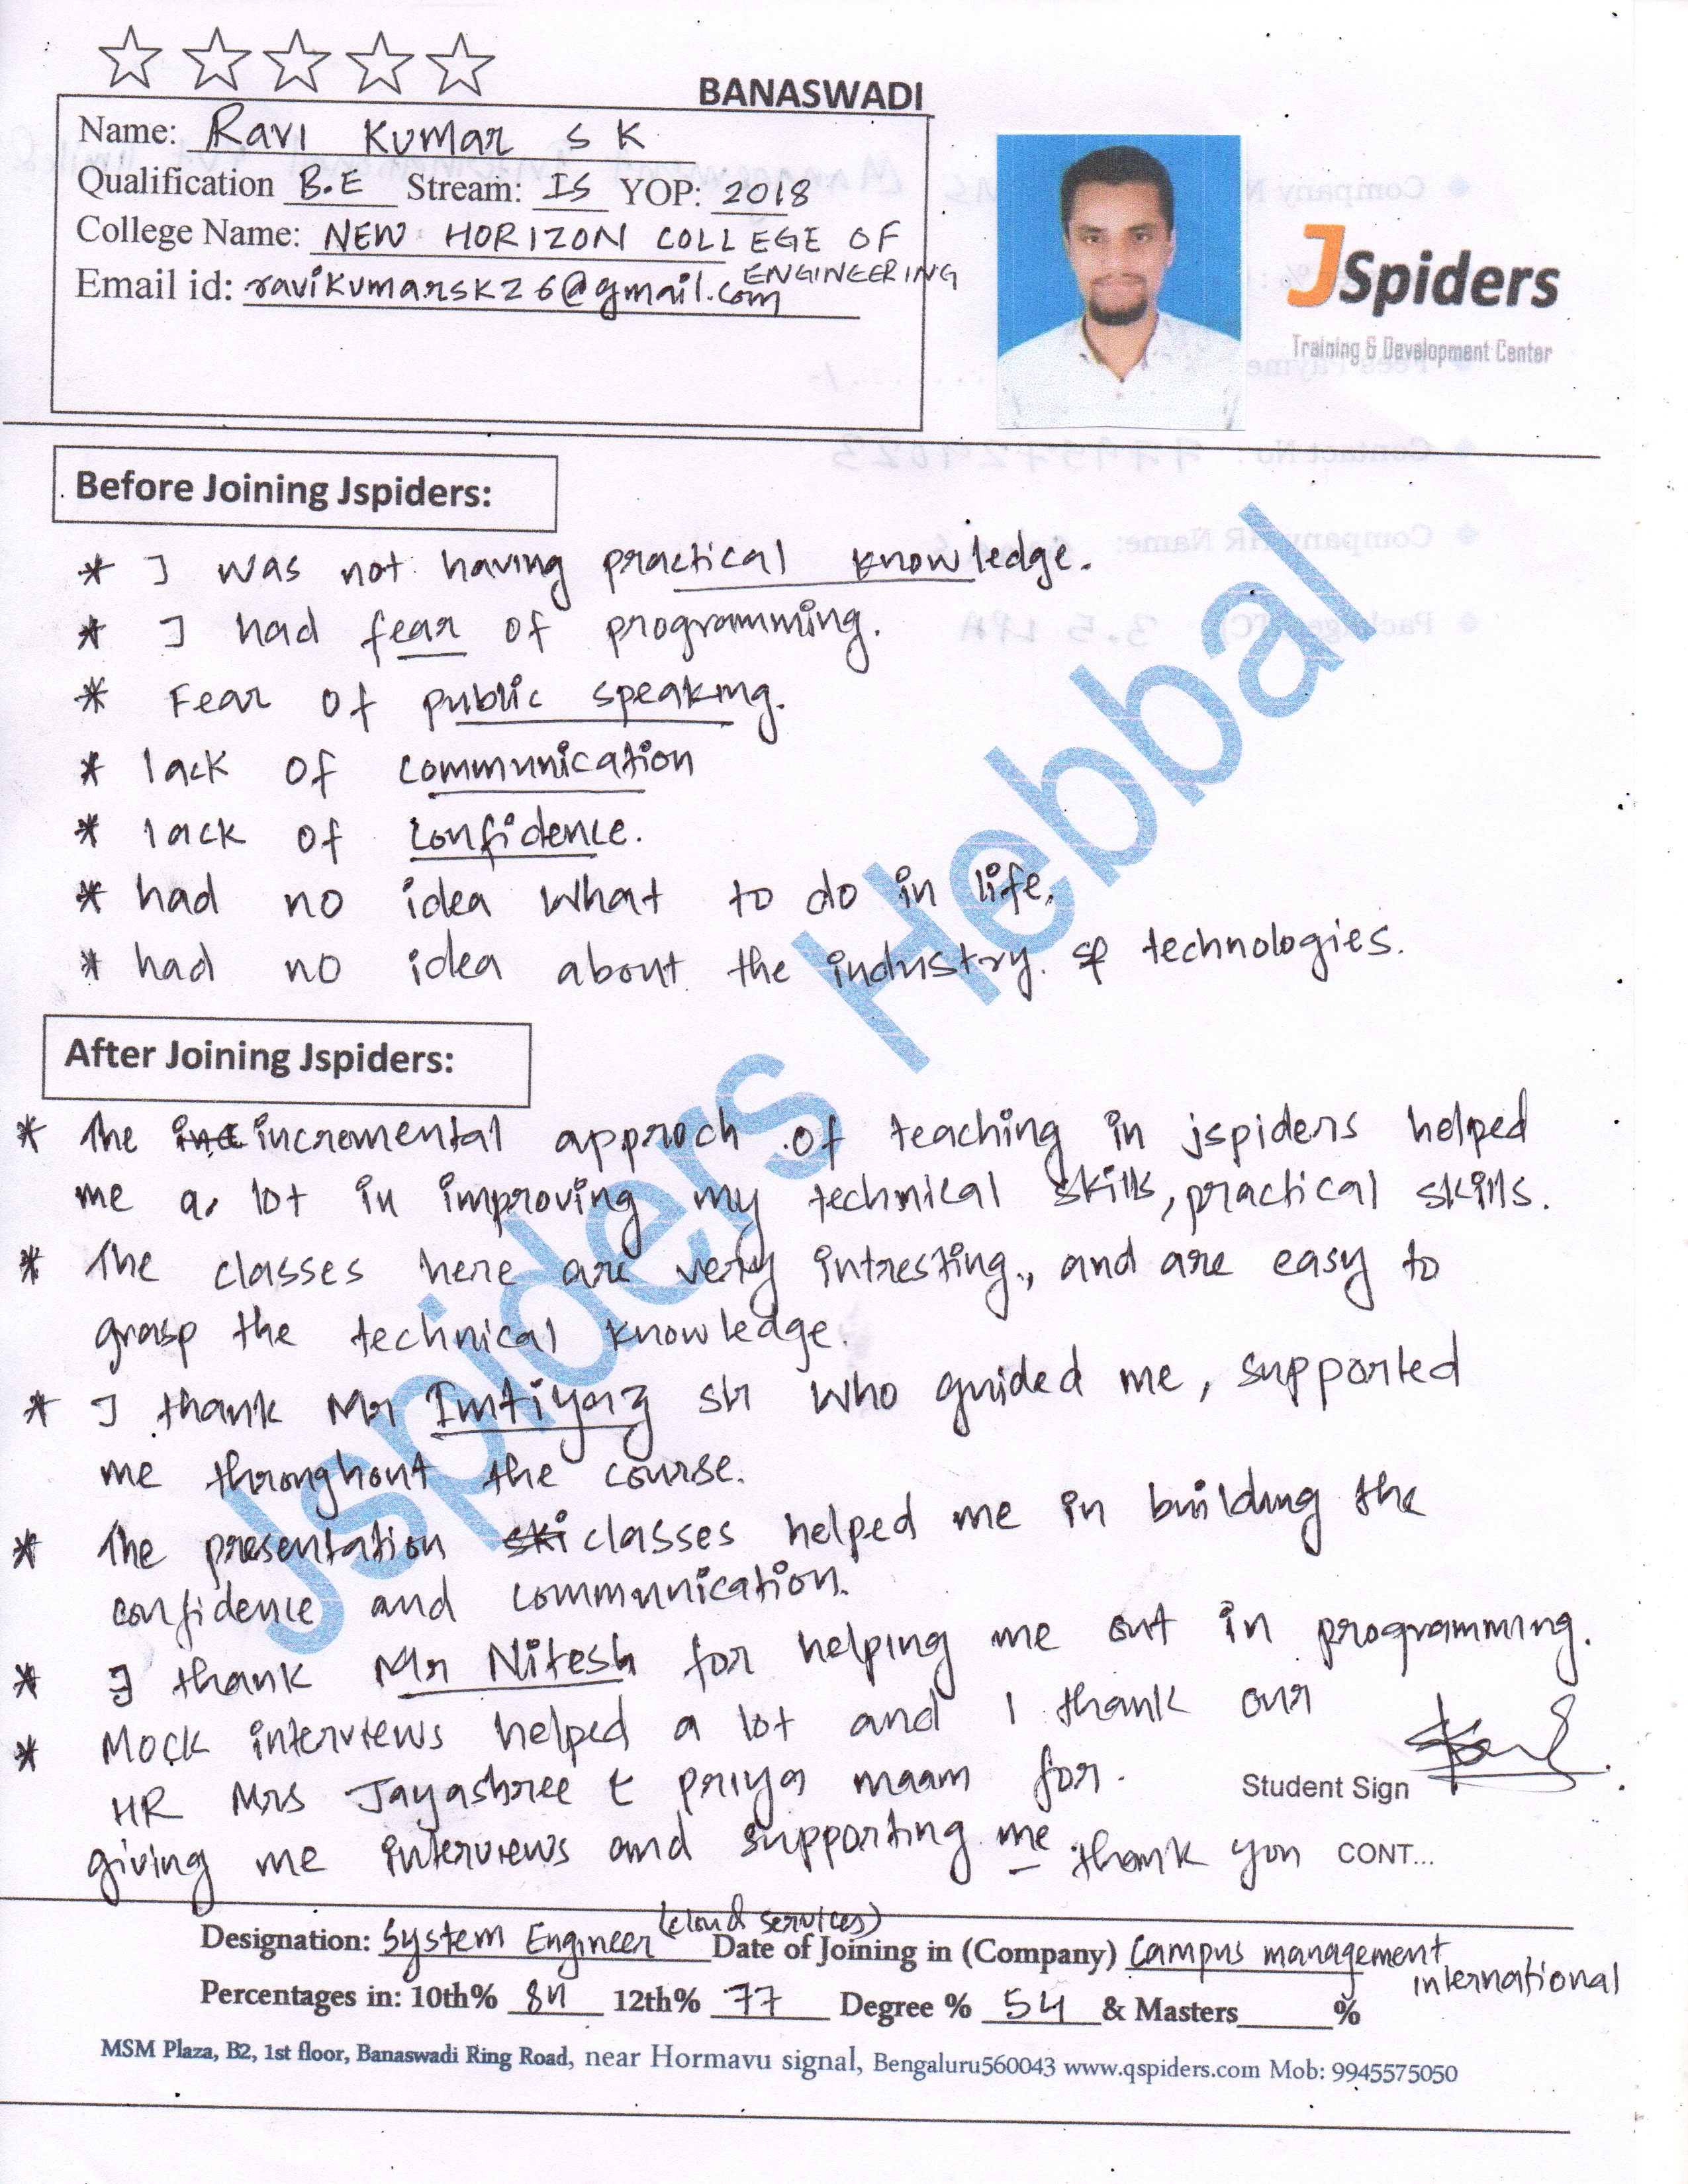 BANASWADI
Name: Ravi Kumar S K
Qualification B.E Stream: IS YOP: 2018
College Name: NEW HORIZON COLLEGE OF
ENGINEERING
Email id: ravikumarsk26@gmail.com
JSpiders
Training & Development Center
Before Joining Jspiders:
* I was not having practical knowledge.
* I had fear of programming.
* Fear of public speaking.
* lack of communication
* lack of confidence.
* had no idea what to do in life.
* had no idea about the industry. & technologies.
After Joining Jspiders:
* The inc incremental approch of teaching in jspiders helped
me a lot in improving my technical skills, practical skills.
* The classes here are very intresting., and are easy to
grasp the technical knowledge.
* I thank Mr Imtiyaz sir who guided me, supported
me throughout the course.
* The presentation ski classes helped me in building the
confidence and communication.
* I thank Mr Nitesh for helping me out in programming.
* Mock interviews helped a lot and I thank our
HR Mrs Jayashree & priya maam for.
Student Sign
giving me interviews and supporting me. thank you CONT...
Designation: System Engineer (cloud services) Date of Joining in (Company) Campus management
international
Percentages in: 10th% 84 12th% 77 Degree % 54 & Masters______%
MSM Plaza, B2, 1st floor, Banaswadi Ring Road, near Hormavu signal, Bengaluru560043 www.qspiders.com Mob: 9945575050
Jspiders Hebbal